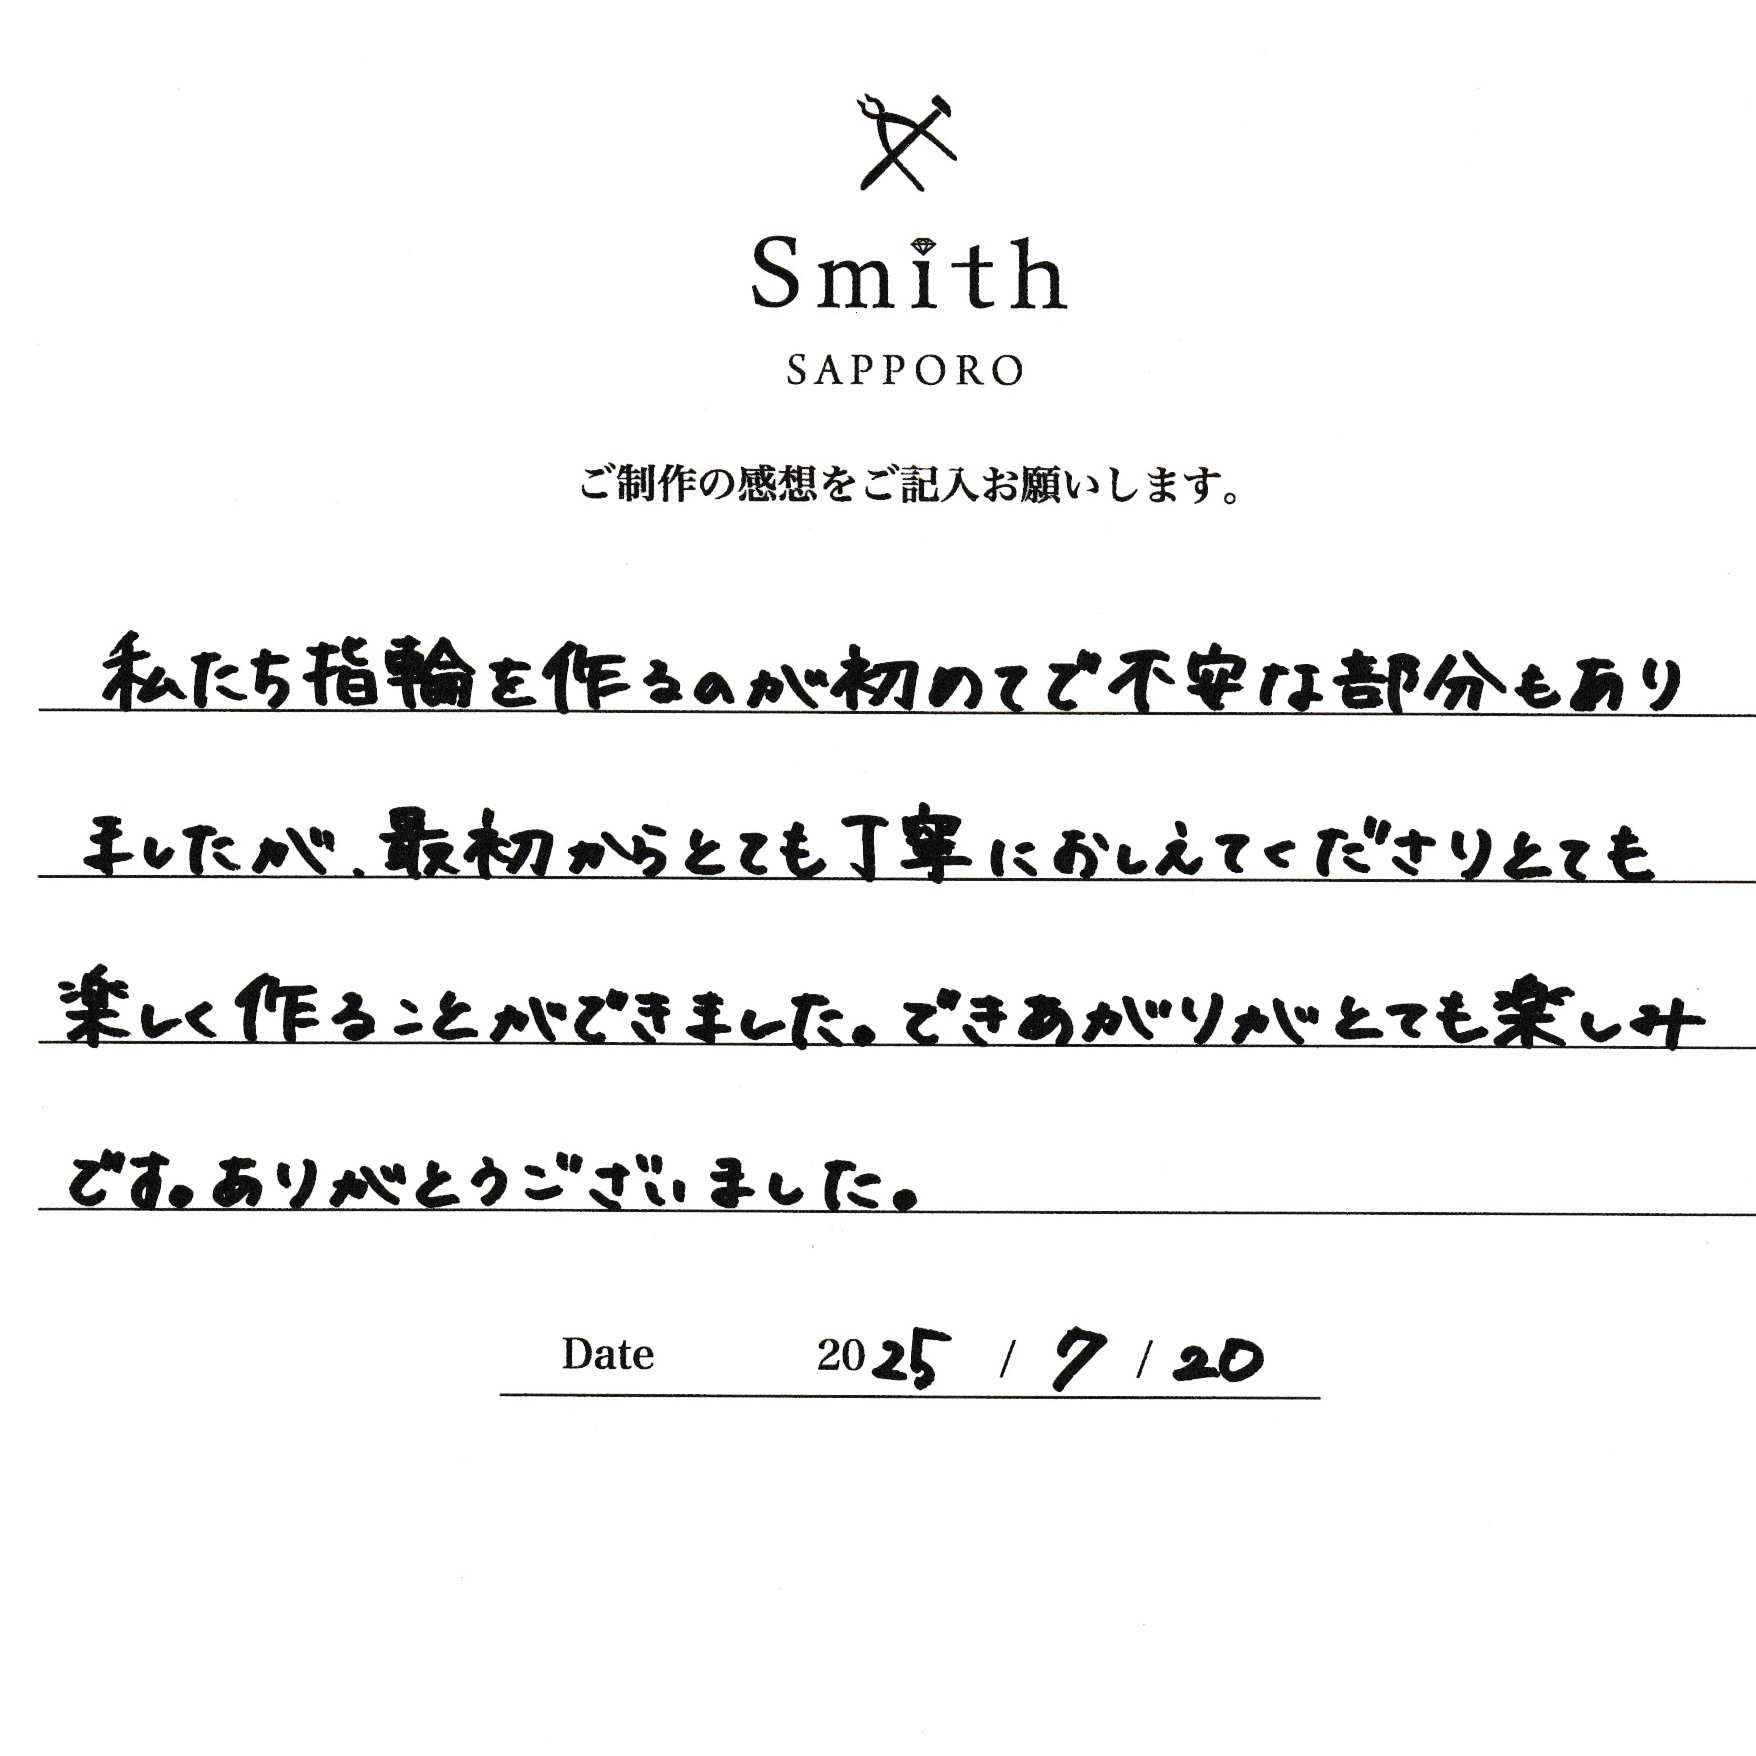 Smith
SAPPORO
ご制作の感想をご記入お願いします。
私たち指輪を作るのが初めてで不安な部分もあり
ましたが、最初からとても丁寧におしえてくださりとても
楽しく作ることができました。できあがりがとても楽しみ
です。ありがとうございました。
Date 2025 / 7 / 20